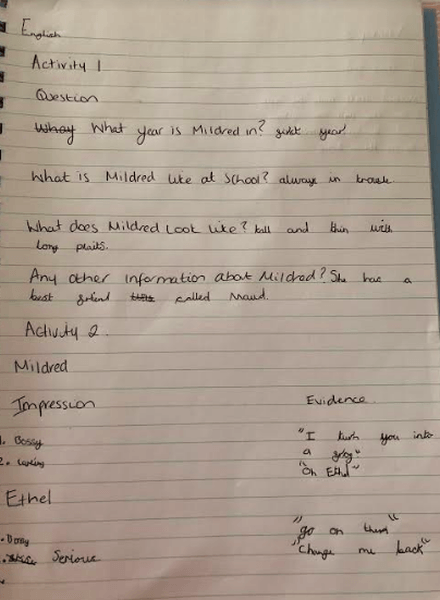 English
Activity 1
Question
What year is Mildred in? first year
What is Mildred like at School? always in trouble
What does Mildred Look Like? tall and thin with
Long plaits.
Any other information about Mildred? She has a
best friend called Maud.
Activity 2.
Mildred
Impression Evidence
1. Bossy "I turn you into
a frog"
2. "Oh Ethel"
Ethel
Bossy "go on then"
Serious "Change me back"